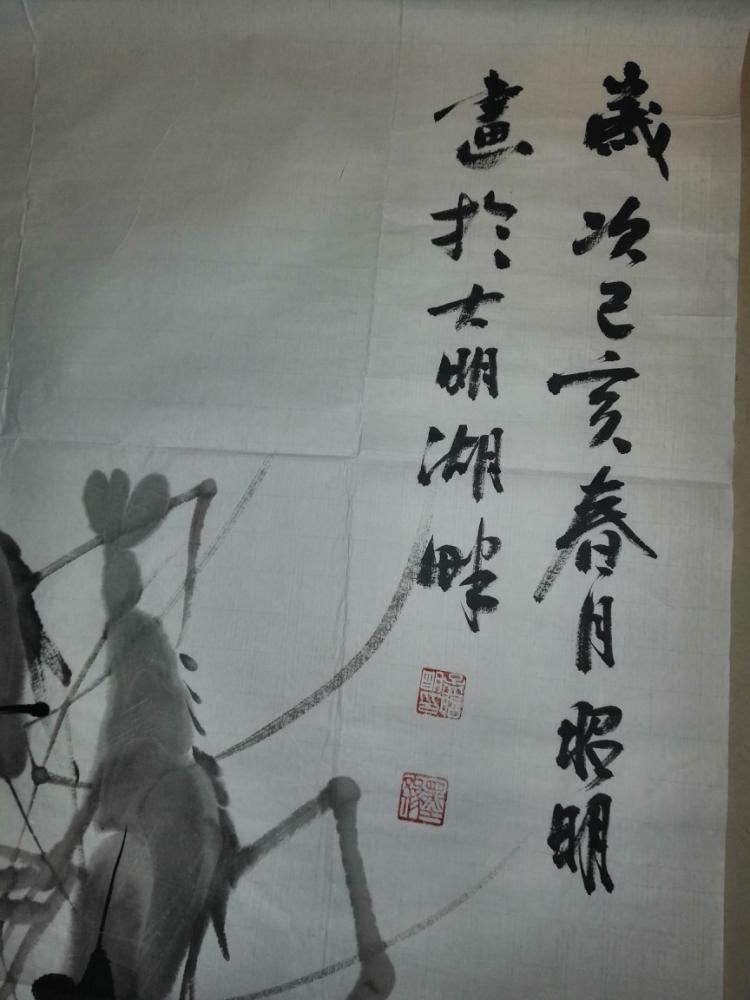 歲次己亥春月昭明
畫於大明湖畔